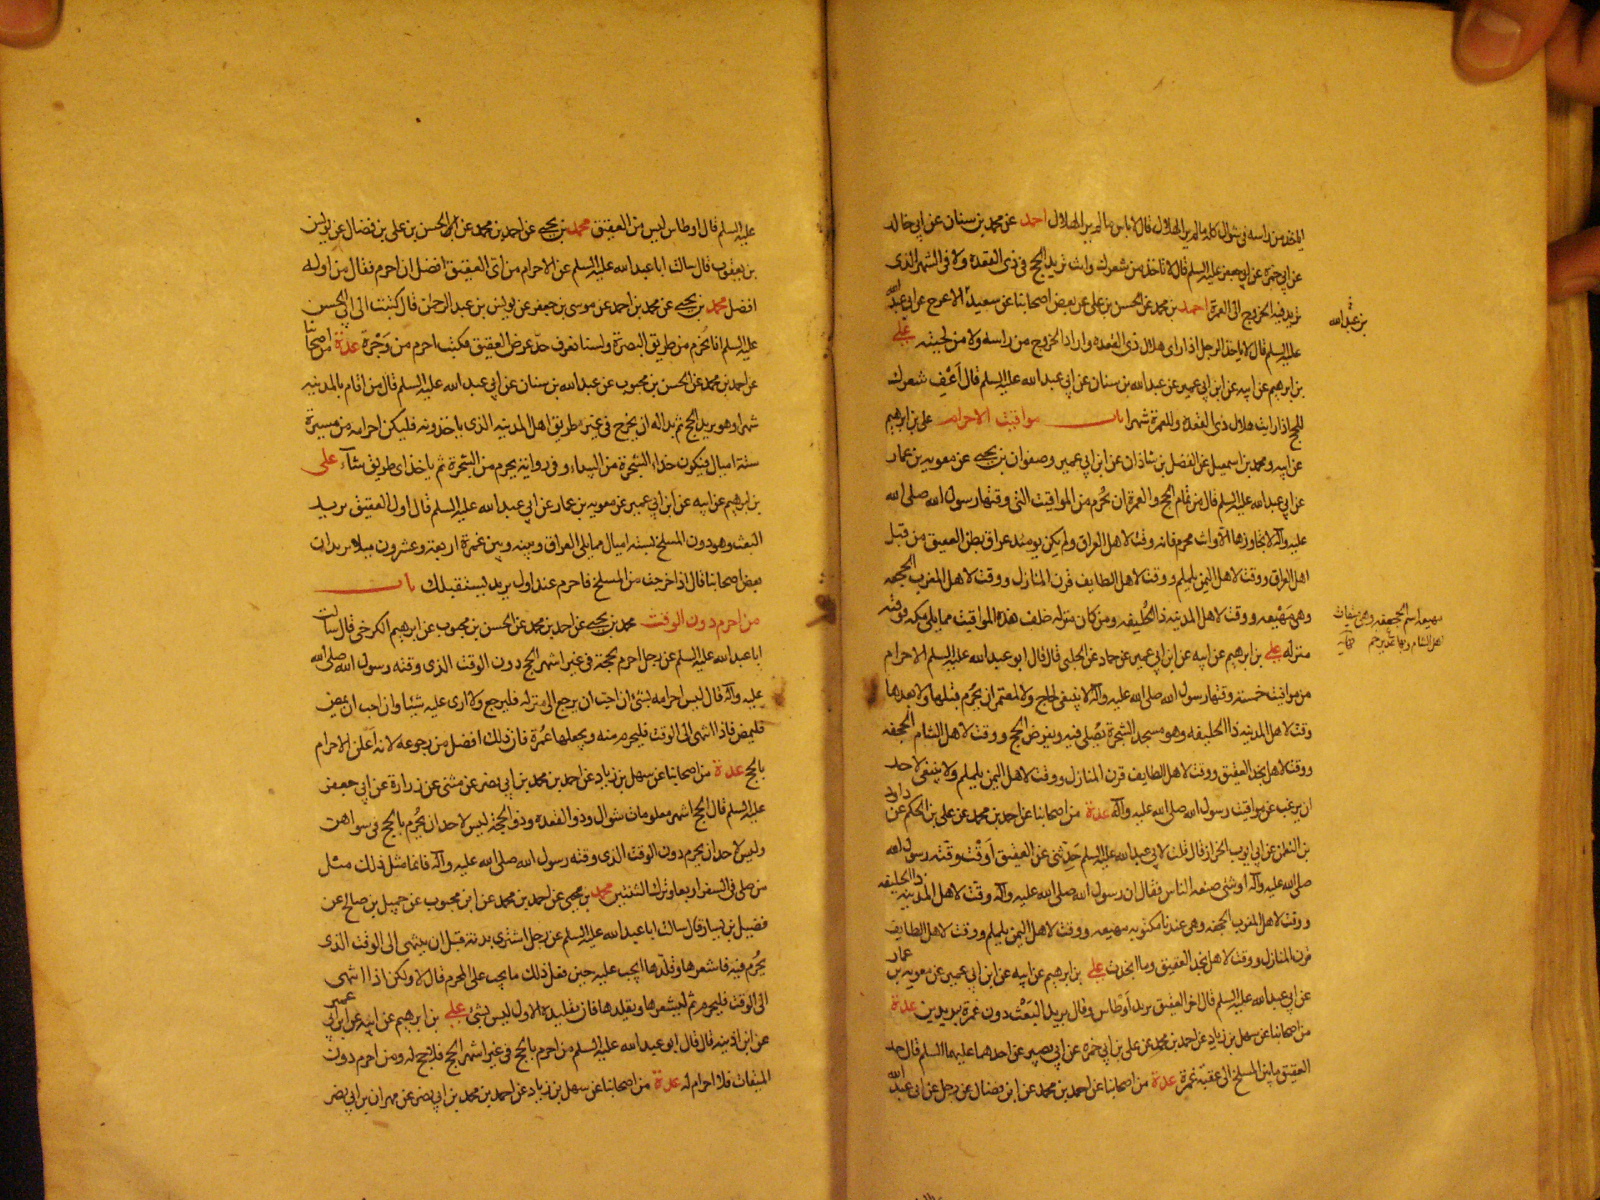 لياخذ من راسه في شوال كله ما لم ير الهلال قال لا باس ما لم ير الهلال احمد عن محمد بن سنان عن ابي خالد
عن ابي حمزه عن ابي جعفر عليه السلم قال لا تاخذ من شعرك وانت تريد الحج في ذي القعده ولا في الشهر الذي
تريد فيه الخروج الى العمرة احمد بن محمد عن الحسن بن علي عن بعض اصحابنا عن سعيد الاعرج عن ابي عبد الله
بن عبد الله
عليه السلم قال لا ياخذ الرجل اذا راى هلال ذي القعده واراد الخروج من راسه ولا من لحيته علي
بن ابرهيم عن ابيه عن ابن ابي عمير عن عبد الله بن سنان عن ابي عبد الله عليه السلم قال اَعْفِ شعرك
للحج اذا رايت هلال ذي القعده وللعمرة شهرا باب مواقيت الاحرام علي بن ابرهيم
عن ابيه ومحمد بن اسمعيل عن الفضل بن شاذان عن ابن ابي عمير وصفوان بن يحيى عن معويه بن عمار
عن ابي عبد الله عليه السلم قال من تمام الحج والعمرة ان تُحرم من المواقيت التي وقتها رسول الله صلى الله
عليه وآله لا تجاوزها الا وانت محرم فانه وقت لاهل العراق ولم يكن يومئذ عراق بطن العقيق من قبل
اهل العراق ووقت لاهل اليمن يلملم ووقت لاهل الطايف قرن المنازل ووقت لاهل المغرب الجحفه
وهي مَهْيَعه ووقت لاهل المدينه ذا الحليفه ومن كان منزله خلف هذه المواقيت مما يلي مكه فوقته
مهيعه اسم الجحفه وهي ميقات
اهل الشام وبها غدير خم نهايه
منزله علي بن ابرهيم عن ابيه عن ابن ابي عمير عن حماد عن الحلبي قال قال ابو عبد الله عليه السلم الاحرام
من مواقيت خمسة وقتها رسول الله صلى الله عليه وآله لا ينبغي لحاج ولا لمعتمر ان يحرم قبلها ولا بعدها
وقت لاهل المدينه ذا الحليفه وهو مسجد الشجرة يُصلي فيه ويفرض الحج ووقت لاهل الشام الجحفه
ووقت لاهل نجد العقيق ووقت لاهل الطايف قرن المنازل ووقت لاهل اليمن يلملم ولا ينبغي لاحد
ان يرغب عن مواقيت رسول الله صلى الله عليه وآله عدة من اصحابنا عن احمد بن محمد عن علي بن الحكم عن داود
بن النعمن عن ابي ايوب الخزاز قال قلت لابي عبد الله عليه السلم حَدِّثني عن العقيق اَوقْت وقّته رسول الله
صلى الله عليه وآله او شئ صنعه الناس فقال ان رسول الله صلى الله عليه وآله وقّت لاهل المدينه ذا الحليفه
ووقت لاهل المغرب الجحفه وهي عندنا مكتوبه مهيعه ووقت لاهل اليمن يلملم ووقت لاهل الطايف
قرن المنازل ووقت لاهل نجد العقيق وما انجدت علي بن ابرهيم عن ابيه عن ابن ابي عمير عن معويه بن عمار
عن ابي عبد الله عليه السلم قال اخر العقيق بريد اَوطاس وقال بريد البَعْث دون غمرة ببريدين عدة
من اصحابنا عن سهل بن زياد عن احمد بن محمد عن علي بن ابي حمزه عن ابي بصير عن احدهما عليهما السلم قال حد
العقيق ما بين المسلخ الى عقبة غمرة عدة من اصحابنا عن احمد بن محمد عن ابن فضال عن رجل عن ابي عبد الله
عليه السلم قال اوطاس ليس من العقيق محمد بن يحيى عن احمد بن محمد عن الحسن بن علي بن فضال عن يونس
بن يعقوب قال سالت ابا عبد الله عليه السلم عن الاحرام من اَي العقيق افضل ان احرم فقال من اوله
افضل محمد بن يحيى عن محمد بن احمد عن موسى بن جعفر عن يونس بن عبد الرحمن قال كتبت الى ابي الحسن
عليه السلم انا نحُرم من طريق البصرة ولسنا نعرف حدّ عرض العقيق فكتب احرم من وَجْرَة عدة من اصحابنا
عن احمد بن محمد عن الحسن بن محبوب عن عبد الله بن سنان عن ابي عبد الله عليه السلم قال من اقام بالمدينه
شهرا وهو يريد الحج ثم بدا له ان يخرج في غير طريق اهل المدينه الذي ياخذونه فليكن احرامه من مسيرة
ستة اميال فيكون حذاء الشجرة من البيداء وفي رواية يحرم من الشجرة ثم ياخذ اي طريق شآء علي
بن ابرهيم عن ابيه عن ابن ابي عمير عن معويه بن عمار عن ابي عبد الله عليه السلم قال اول العقيق بريد
البعث وهو دون المسلخ بستة اميال مما يلي العراق وبينه وبين غمرة اربعة وعشرون ميلا بريدان
بعض اصحابنا قال اذا خرجت من المسلخ فاحرم عند اول بريد يستقبلك باب
من احرم دون الوقت محمد بن يحيى عن احمد بن محمد عن الحسن بن محبوب عن ابرهيم الكرخي قال سالت
ابا عبد الله عليه السلم عن رجل احرم بحجة في غير اشهر الحج دون الوقت الذي وقته رسول الله صلى الله
عليه وآله قال ليس احرامه بشئ ان احبّ ان يرجع الى منزله فليرجع ولا ارى عليه شيئا وان احب ان يمضي
فليمض فاذا انتهى الى الوقت فليحرم منه ويجعلها عُمرة فان ذلك افضل من رجوعه لانه اَعلن الاحرام
بالحج عدة من اصحابنا عن سهل بن زياد عن احمد بن محمد بن ابي نصر عن مثنى عن زرارة عن ابي جعفر
عليه السلم قال الحج اشهر معلومات شوال وذو القعده وذو الحجة ليس لاحد ان يحُرم بالحج في سواهن
وليس لاحد ان يحرم دون الوقت الذي وقته رسول الله صلى الله عليه وآله فانما مثل ذلك مثل
من صلى في السفر اربعا وترك الثنتين محمد بن يحيى عن احمد بن محمد عن ابن محبوب عن جميل بن صالح عن
فضيل بن يسار قال سالت ابا عبد الله عليه السلم عن رجل اشترى بدنة قبل ان ينتهي الى الوقت الذي
يحُرم فيه فاشعرها وقلّدها ايجب عليه حين فعل ذلك ما يجب على المحرم قال لا ولكن اذا انتهى
الى الوقت فليحرم ثم ليشعرها ويقلدها فان تقليده الاول ليس بشئ علي بن ابرهيم عن ابيه عن ابن ابي عمير
عن ابن اذينه قال قال ابو عبد الله عليه السلم من احرم بالحج في غير اشهر الحج فلا حج له ومن احرم دون
الميقات فلا احرام له عدة من اصحابنا عن سهل بن زياد عن احمد بن محمد بن ابي نصر عن مهران بن ابي نصر